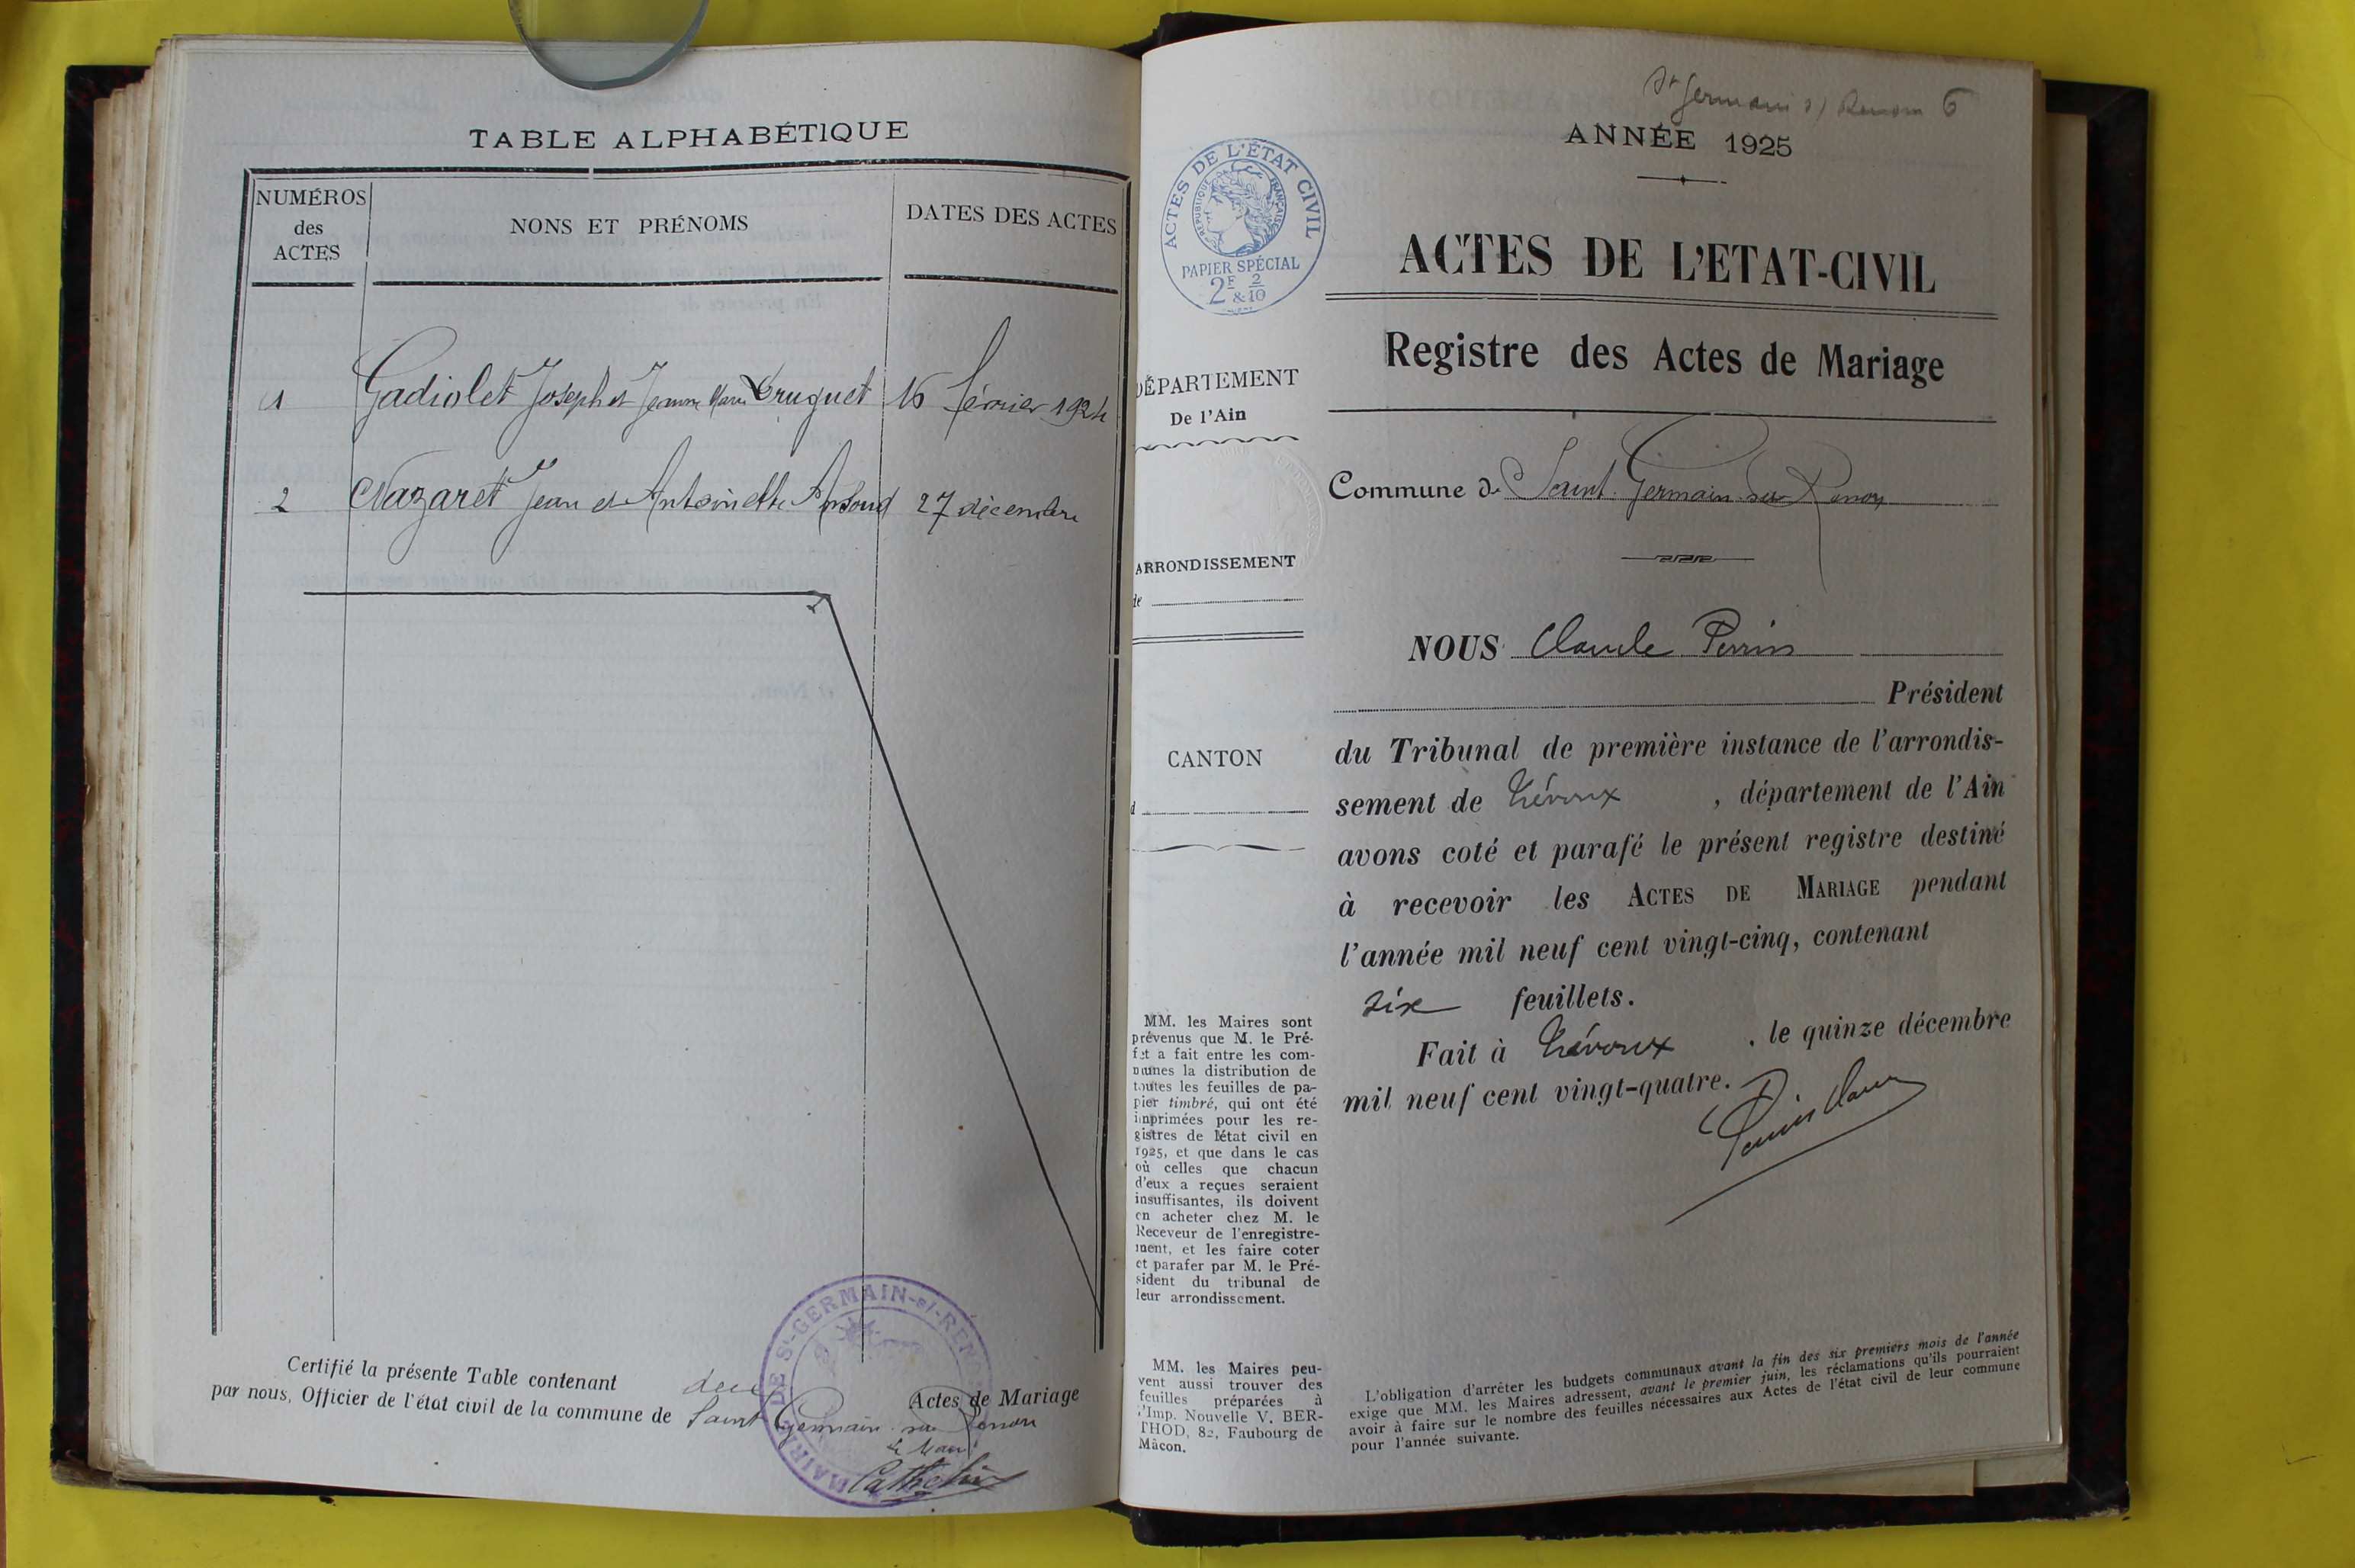 TABLE ALPHABÉTIQUE
NUMÉROS
des
ACTES
NONS ET PRÉNOMS
DATES DES ACTES
1 Gadiolet Joseph et Jeanne Marie Druguet 16 février 1924
2 Nazaret Jean et Antoinette 27 décembre
Certifié la présente Table contenant deux Actes de Mariage
par nous, Officier de l'état civil de la commune de Saint Germain sur Renon
le Maire
Cathelin
MAIRIE DE St-GERMAIN-s/-RENON
St Germain s/ Renom 6
ANNÉE 1925
ACTES DE L'ÉTAT CIVIL
RÉPUBLIQUE FRANÇAISE
PAPIER SPÉCIAL
2F 2
& 10
ACTES DE L'ETAT-CIVIL
Registre des Actes de Mariage
DÉPARTEMENT
De l'Ain
Commune de Saint Germain sur Renon
ARRONDISSEMENT
de
CANTON
d
NOUS Claude Perrin
Président
du Tribunal de première instance de l'arrondis-
sement de Trévoux , département de l'Ain
avons coté et parafé le présent registre destiné
à recevoir les ACTES DE MARIAGE pendant
l'année mil neuf cent vingt-cinq, contenant
six feuillets.
Fait à Trévoux , le quinze décembre
mil neuf cent vingt-quatre.
MM. les Maires sont
prévenus que M. le Pré-
fet a fait entre les com-
munes la distribution de
toutes les feuilles de pa-
pier timbré, qui ont été
imprimées pour les re-
gistres de l'état civil en
1925, et que dans le cas
où celles que chacun
d'eux a reçues seraient
insuffisantes, ils doivent
en acheter chez M. le
Receveur de l'enregistre-
ment, et les faire coter
et parafer par M. le Pré-
sident du tribunal de
leur arrondissement.
MM. les Maires peu-
vent aussi trouver des
feuilles préparées à
l'Imp. Nouvelle V. BER-
THOD, 82, Faubourg de
Mâcon.
L'obligation d'arrêter les budgets communaux avant la fin des six premiers mois de l'année
exige que MM. les Maires adressent, avant le premier juin, les réclamations qu'ils pourraient
avoir à faire sur le nombre des feuilles nécessaires aux Actes de l'état civil de leur commune
pour l'année suivante.